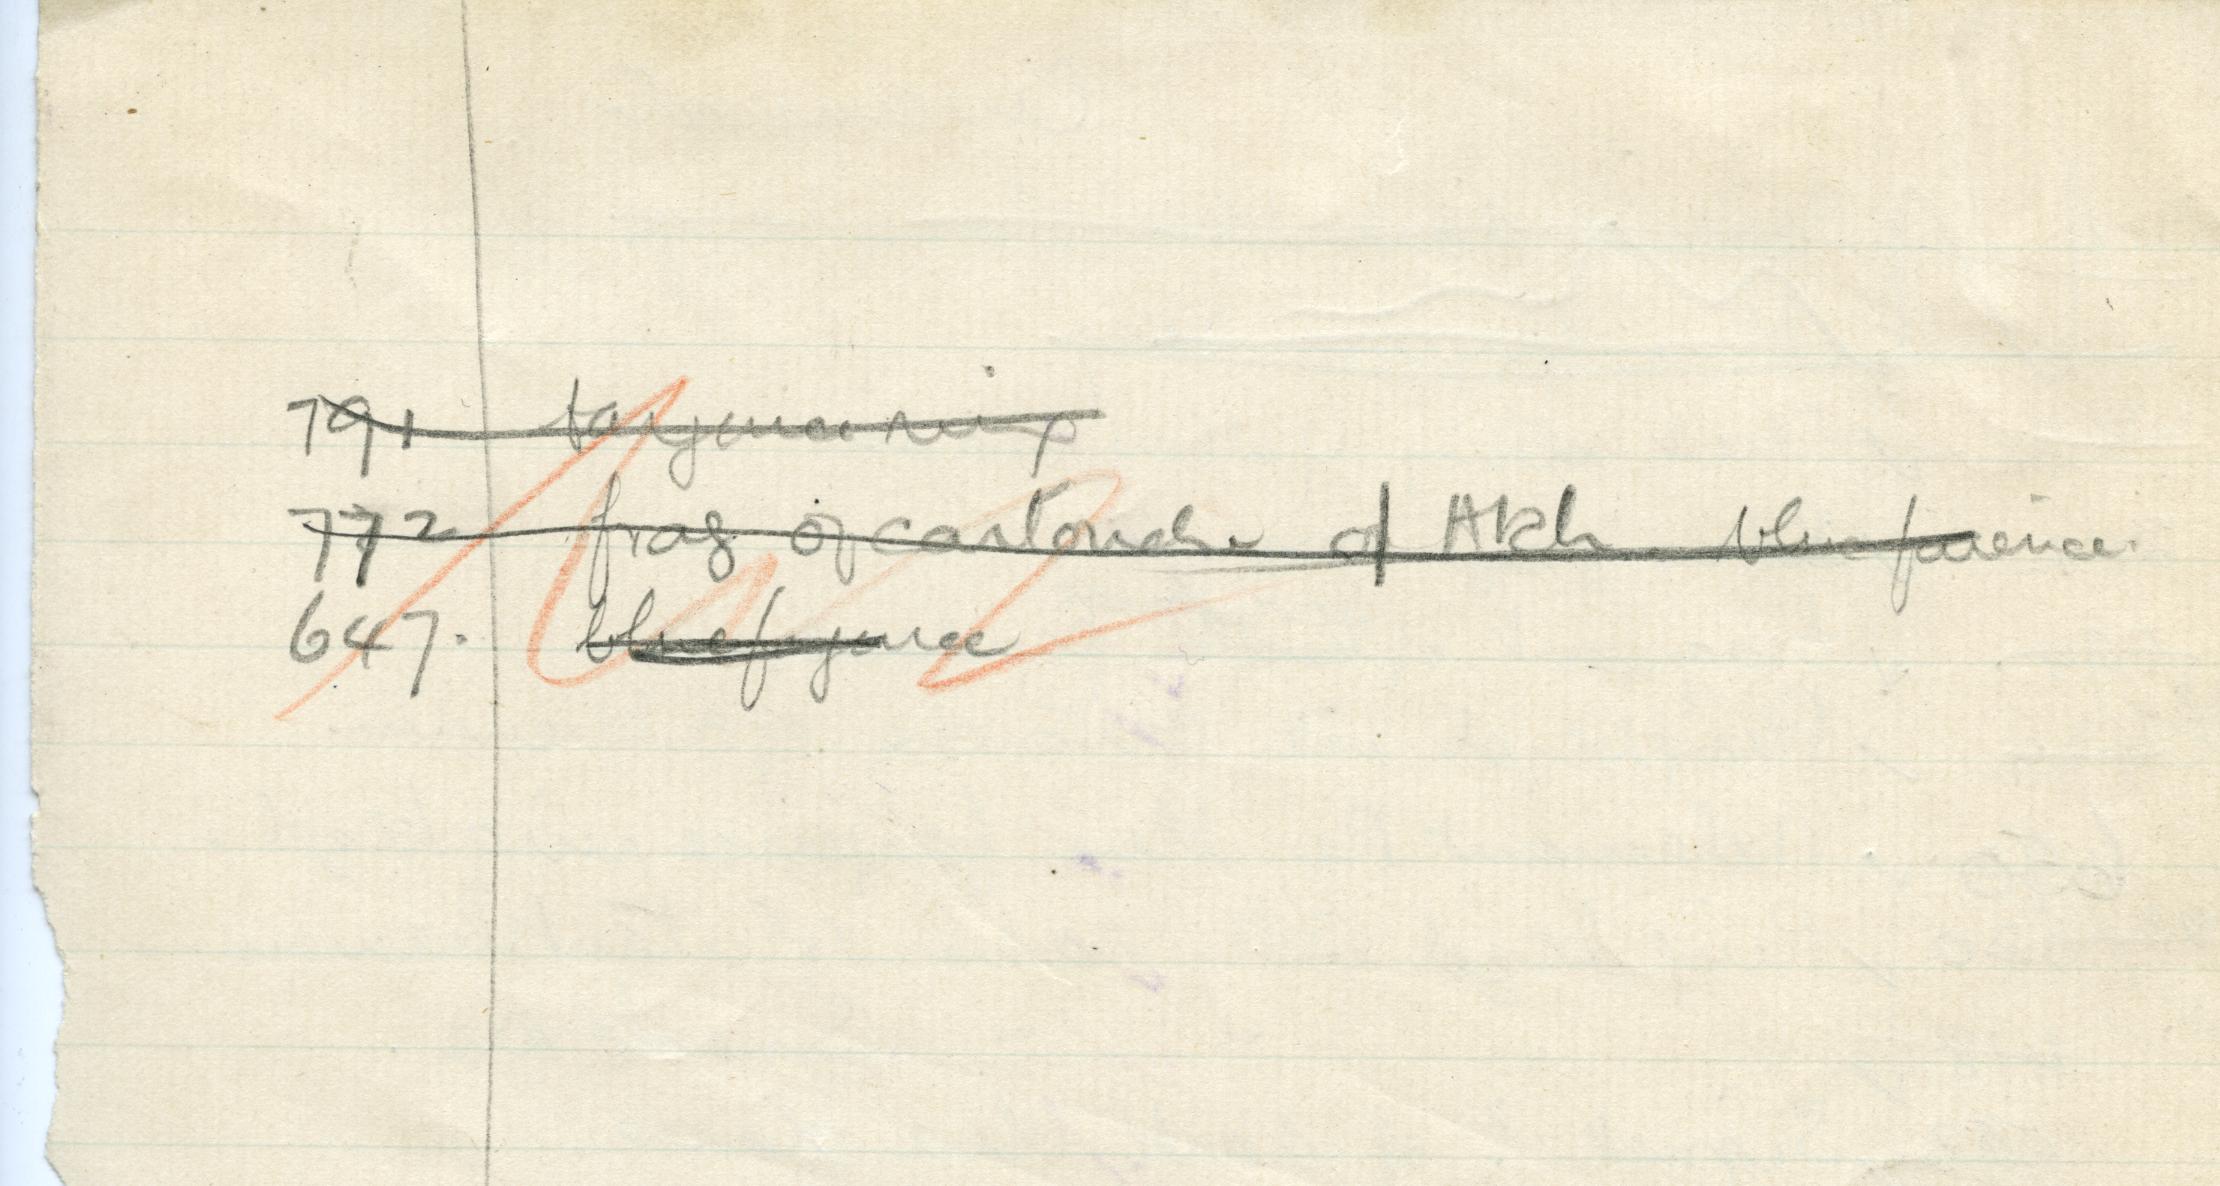 791 ring
772 frag of cartouche of Akh. blue faience.
647. blue